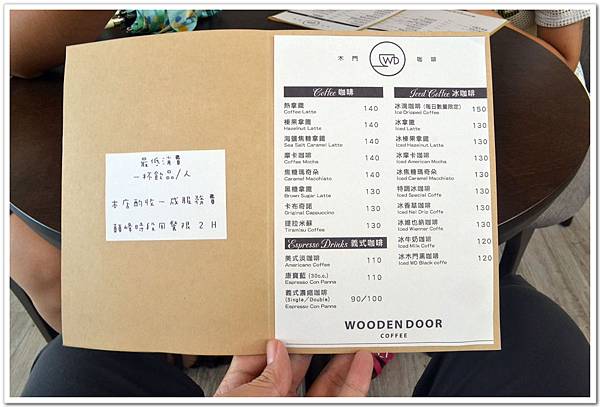 最低消費
一杯飲品/人
本店酌收一成服務費
顛峰時段用餐限 2 H
木門 WD 咖啡
Coffee 咖啡
熱拿鐵 140
Coffee Latte
榛果拿鐵 140
Hazelnut Latte
海鹽焦糖拿鐵 140
Sea Salt Caramel Latte
摩卡咖啡 140
Coffee Mocha
焦糖瑪奇朵 140
Caramel Macchiato
黑糖拿鐵 130
Brown Sugar Latte
卡布奇諾 130
Original Cappuccino
提拉米蘇 130
Tiramisu Coffee
Espresso Drinks 義式咖啡
美式淡咖啡 110
Americano Coffee
康寶藍 (30c.c.) 110
Espresso Con Panna
義式濃縮咖啡
(Single/Double) 90/100
Espresso Con Panna
Iced Coffee 冰咖啡
冰滴咖啡 (每日數量限定) 150
Ice Dripped Coffee
冰拿鐵 130
Iced Latte
冰榛果拿鐵 130
Iced Hazelnut Latte
冰摩卡咖啡 130
Iced American Mocha
冰焦糖瑪奇朵 130
Iced Caramel Macchiato
特調冰咖啡 130
Iced Special Coffe
冰香草咖啡 130
Iced Nei Dric Coffe
冰維也納咖啡 130
Iced Winner Coffe
冰牛奶咖啡 120
Iced Milk Coffe
冰木門黑咖啡 120
Iced WD Black coffe
WOODEN DOOR
COFFEE